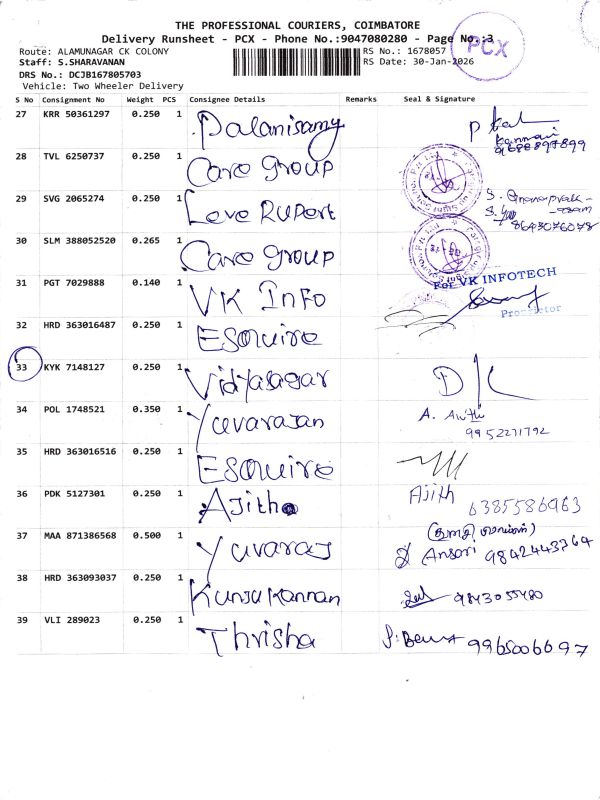 THE PROFESSIONAL COURIERS, COIMBATORE
Delivery Runsheet - PCX - Phone No.:9047080280 - Page No.:3
PCX
Route: ALAMUNAGAR CK COLONY
RS No.: 1678057
Staff: S.SHARAVANAN
RS Date: 30-Jan-2026
DRS No.: DCJB167805703
Vehicle: Two Wheeler Delivery
S No Consignment No Weight PCS Consignee Details Remarks Seal & Signature
27 KRR 50361297 0.250 1 Palanisamy
28 TVL 6250737 0.250 1 Care Group
29 SVG 2065274 0.250 1 Love Rupert 8643076078
30 SLM 388052520 0.265 1 Care Group
31 PGT 7029888 0.140 1 VK Info For VK INFOTECH
Proprietor
32 HRD 363016487 0.250 1 Esquire
33 KYK 7148127 0.250 1 Vidyasagar
34 POL 1748521 0.350 1 Yuvarajan A.
9952271792
35 HRD 363016516 0.250 1 Esquire
36 PDK 5127301 0.250 1 Ajitha Ajith 6385586963
37 MAA 871386568 0.500 1 Yuvaraj Ansari 9842443764
38 HRD 363093037 0.250 1 Kunju Kannan 9843055480
39 VLI 289023 0.250 1 Thrisha 9965006697